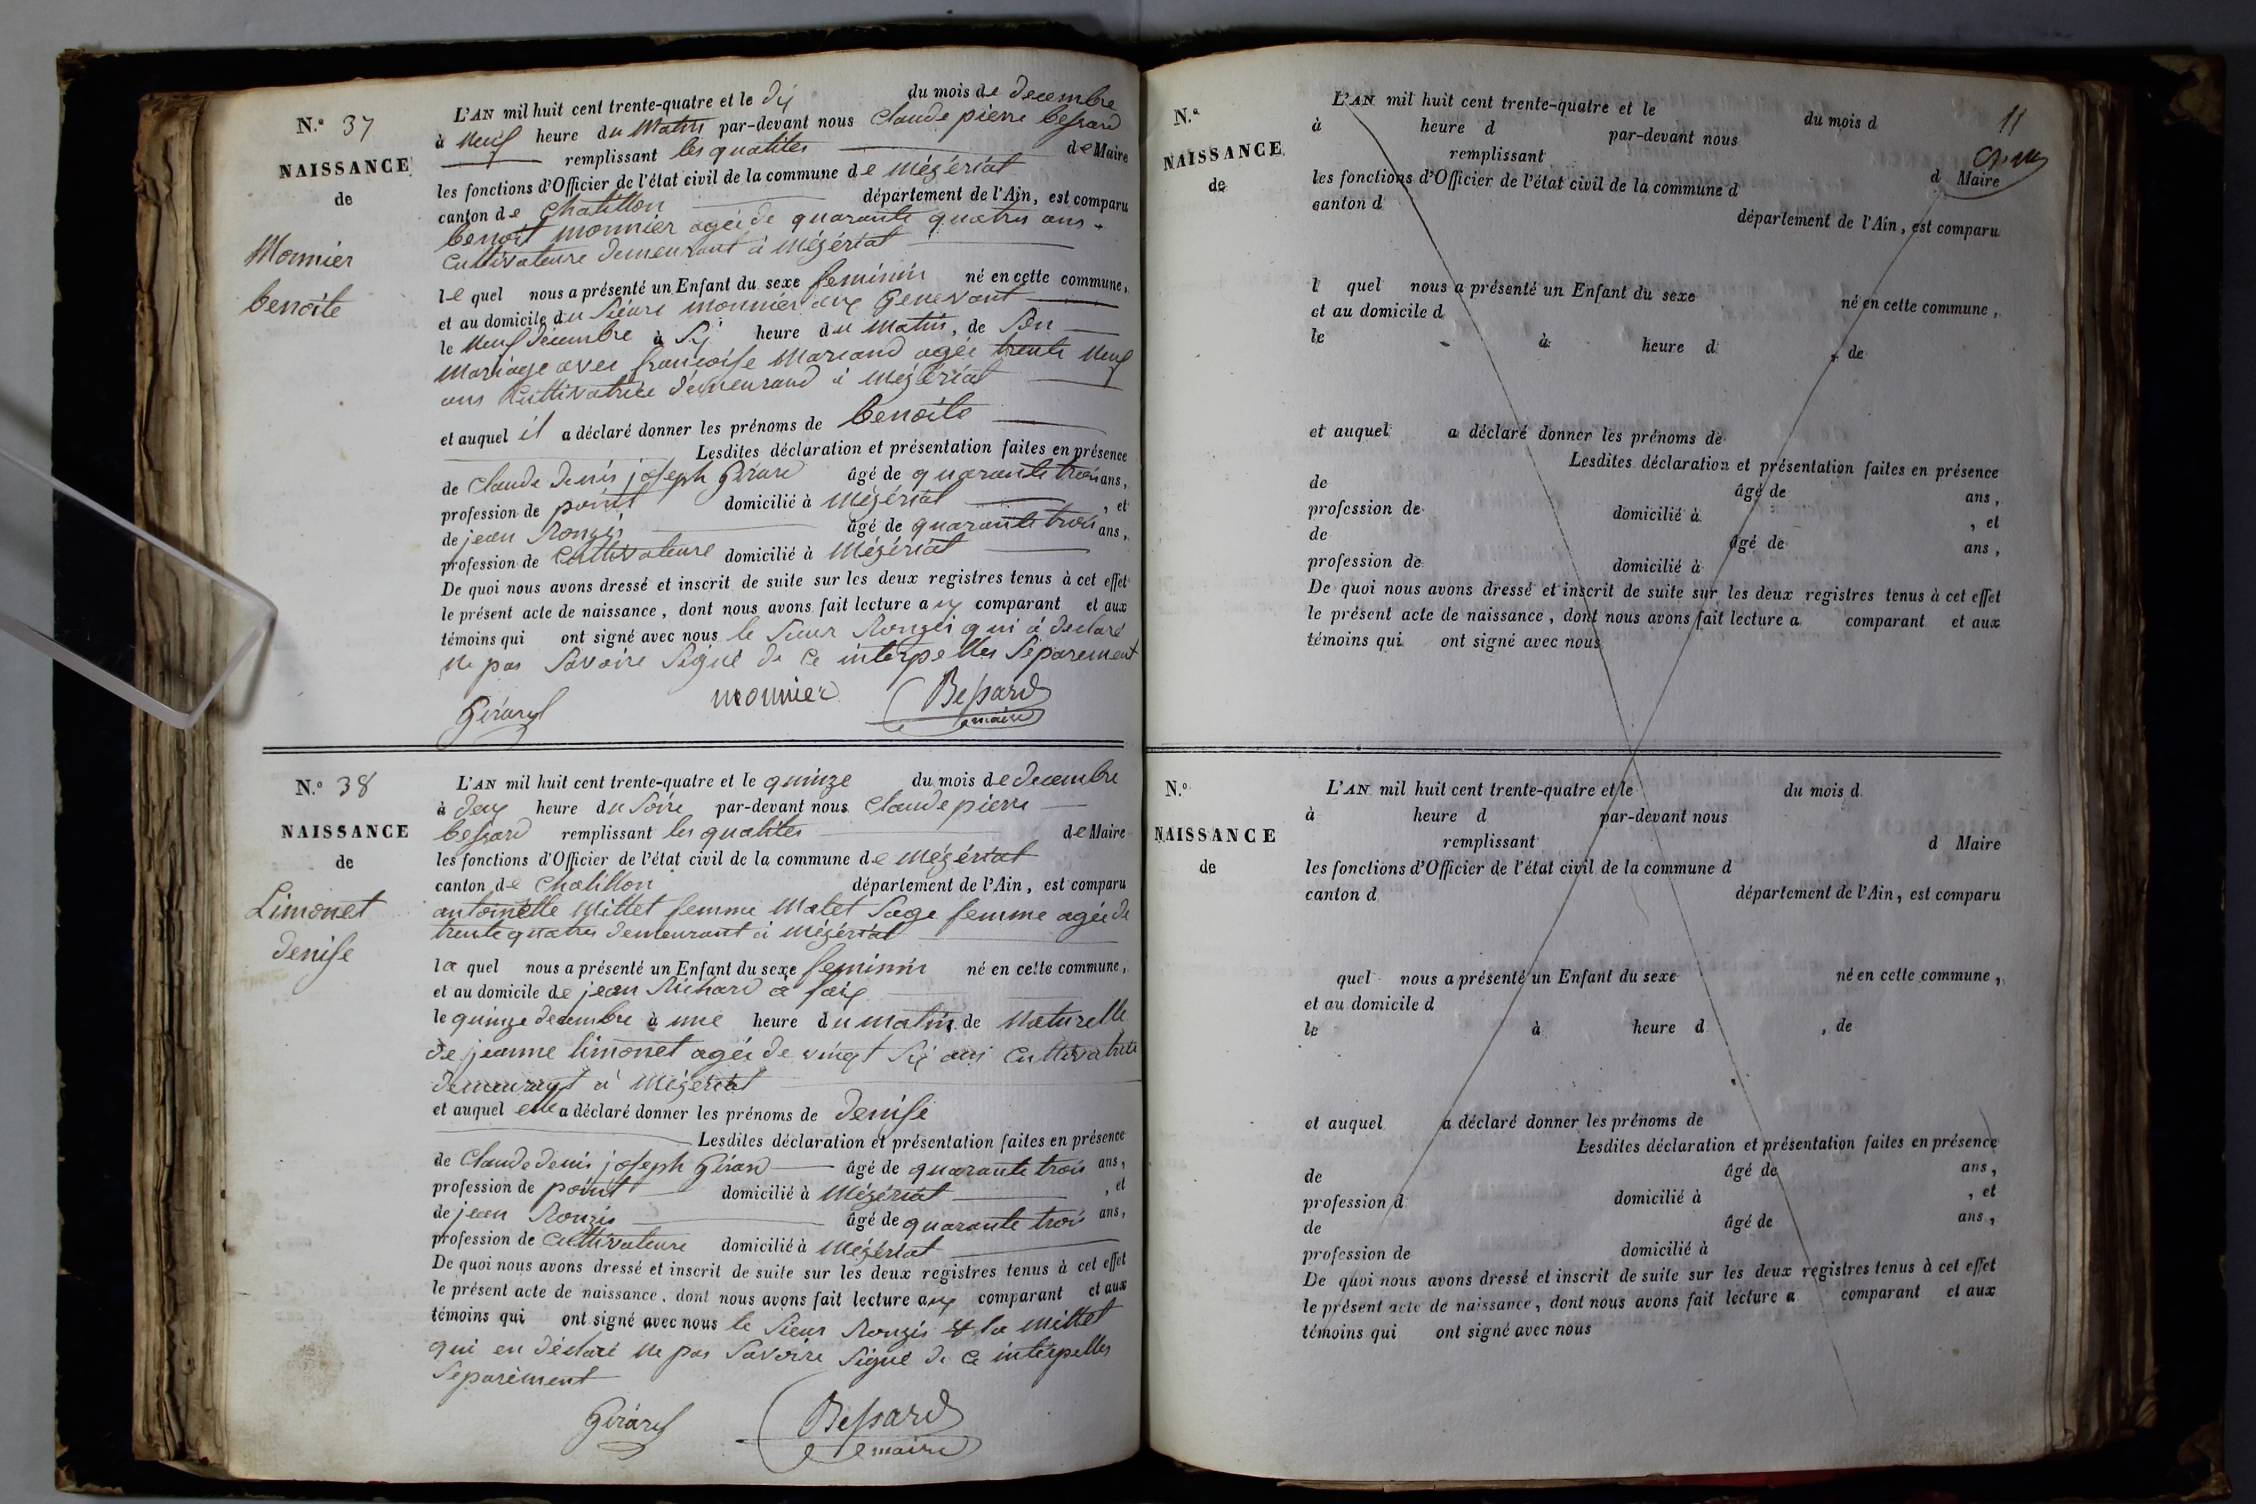 N.º 37
NAISSANCE
de
Monnier
benoite
L'AN mil huit cent trente-quatre et le dix du mois de decembre
à neuf heure du Matin par-devant nous Claude pierre bessard
remplissant les qualites de Maire
les fonctions d'Officier de l'état civil de la commune de Mézériat
canton de Chatillon département de l'Ain, est comparu
benoit monnier agée de quarante quatres ans
Cultivateure demeurant à Mézériat
le quel nous a présenté un Enfant du sexe feminin né en cette commune,
et au domicile du Sieurs monnier aux Genevant
le Neuf decembre à Six heure du Matin, de Son
Mariage avec francoise Marcand agée trente Neuf
ans Cultivatrice demeurand à Mézériat
et auquel il a déclaré donner les prénoms de benoite
Lesdites déclaration et présentation faites en présence
de Claude denis joseph Girard âgé de quarante trois ans,
profession de point domicilié à Mézériat , et
de jean Rongis âgé de quarante trois ans,
profession de Cultivateure domicilié à Mézériat
De quoi nous avons dressé et inscrit de suite sur les deux registres tenus à cet effet
le présent acte de naissance, dont nous avons fait lecture aux comparant et aux
témoins qui ont signé avec nous le Sieur Rongis qui à declaré
Ne pas Savoire Signé de Ce interpelles Séparement
Girard monnier Bessard
maire
N.º 38
NAISSANCE
de
Limonet
denise
L'AN mil huit cent trente-quatre et le quinze du mois de decembre
à deux heure du Soire par-devant nous Claude pierre
bessard remplissant les qualites de Maire
les fonctions d'Officier de l'état civil de la commune de Mézériat
canton de Chatillon département de l'Ain, est comparu
antoinette Mittet femme Matet Sage femme agée de
trente quatres demeurant à Mézériat
la quel nous a présenté un Enfant du sexe feminin né en cette commune,
et au domicile de jean Richard à faix
le quinze decembre à une heure du matin de Naturelle
de jeanne limonet agée de vingt Six ans Cultivatrice
demeurant à Mézériat
et auquel elle a déclaré donner les prénoms de denise
Lesdites déclaration et présentation faites en présence
de Claude denis joseph Girard âgé de quarante trois ans,
profession de point domicilié à Mézériat , et
de jean Rongis âgé de quarante trois ans,
profession de Cultivateure domicilié à Mézériat
De quoi nous avons dressé et inscrit de suite sur les deux registres tenus à cet effet
le présent acte de naissance, dont nous avons fait lecture aux comparant et aux
témoins qui ont signé avec nous le Sieur Rongis et la Mittet
qui en déclaré Ne pas Savoire Signé de Ce interpelles
Séparément
Girard Bessard
maire
11
N.º
NAISSANCE
de
L'AN mil huit cent trente-quatre et le du mois d
à heure d par-devant nous
remplissant d Maire
les fonctions d'Officier de l'état civil de la commune d
canton d département de l'Ain, est comparu
l quel nous a présenté un Enfant du sexe né en cette commune,
et au domicile d
le à heure d , de
et auquel a déclaré donner les prénoms de
Lesdites déclaration et présentation faites en présence
de âgé de ans,
profession de domicilié à , et
de âgé de ans,
profession de domicilié à
De quoi nous avons dressé et inscrit de suite sur les deux registres tenus à cet effet
le présent acte de naissance, dont nous avons fait lecture a comparant et aux
témoins qui ont signé avec nous
N.º
NAISSANCE
de
L'AN mil huit cent trente-quatre et le du mois d
à heure d par-devant nous
remplissant d Maire
les fonctions d'Officier de l'état civil de la commune d
canton d département de l'Ain, est comparu
quel nous a présenté un Enfant du sexe né en cette commune,
et au domicile d
le à heure d , de
et auquel a déclaré donner les prénoms de
Lesdites déclaration et présentation faites en présence
de âgé de ans,
profession d domicilié à , et
de âgé de ans,
profession de domicilié à
De quoi nous avons dressé et inscrit de suite sur les deux registres tenus à cet effet
le présent acte de naissance, dont nous avons fait lecture a comparant et aux
témoins qui ont signé avec nous